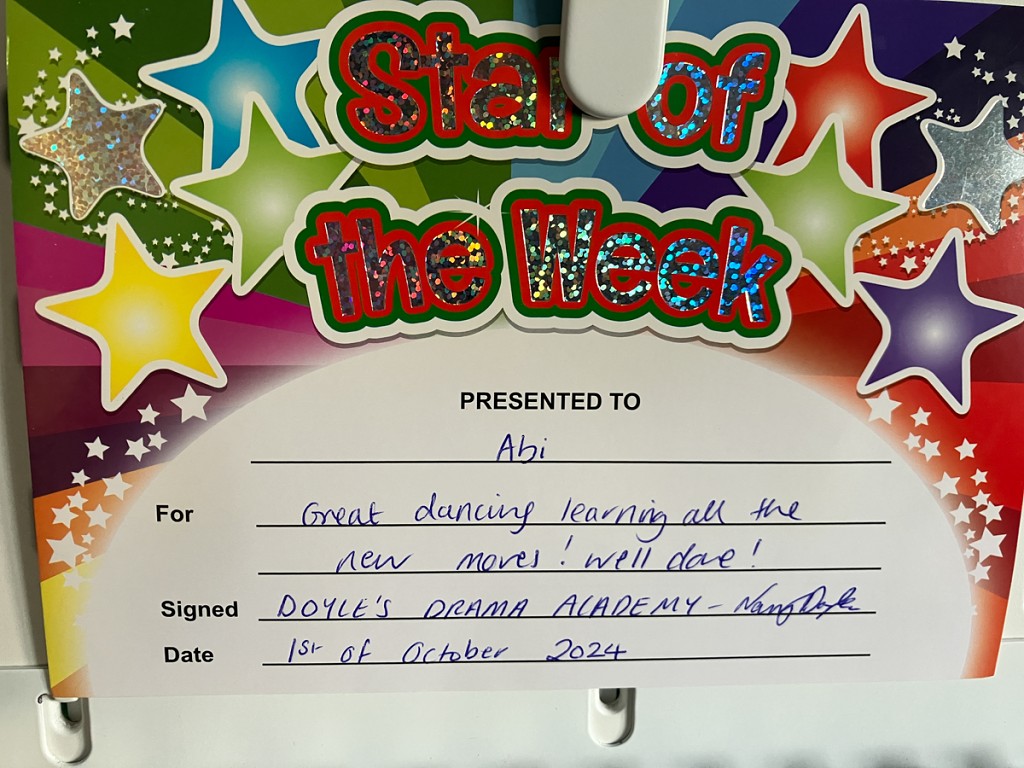 Star of
the Week
PRESENTED TO
Abi
For Great dancing learning all the
new moves! well done!
Signed DOYLE'S DRAMA ACADEMY - Nancy Doyle
Date 1st of October 2024